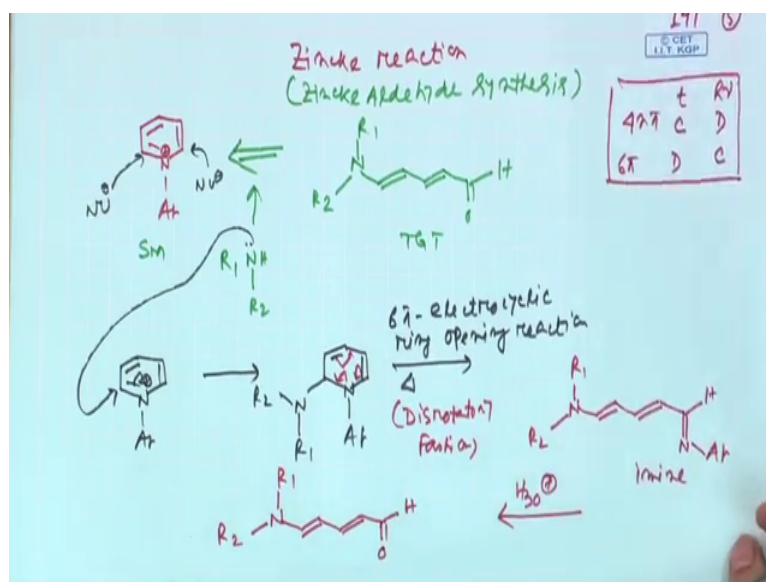 Zincke reaction
(Zincke Aldehyde synthesis)
© CET
I.I.T. KGP
t hν
4nπ C D
6π D C
R1
N
R2
H
O
TGT
Nu⊖
Nu⊖
⊕
N
Ar
SM
R1 N̈H
R2
⊕
N
Ar
R2 N
R1
N
Ar
6π- electrocyclic
ring opening reaction
Δ
(Disrotatory
Fashion)
R1
N
R2
H
N-Ar
imine
H3O⊕
R1
R2 N
H
O